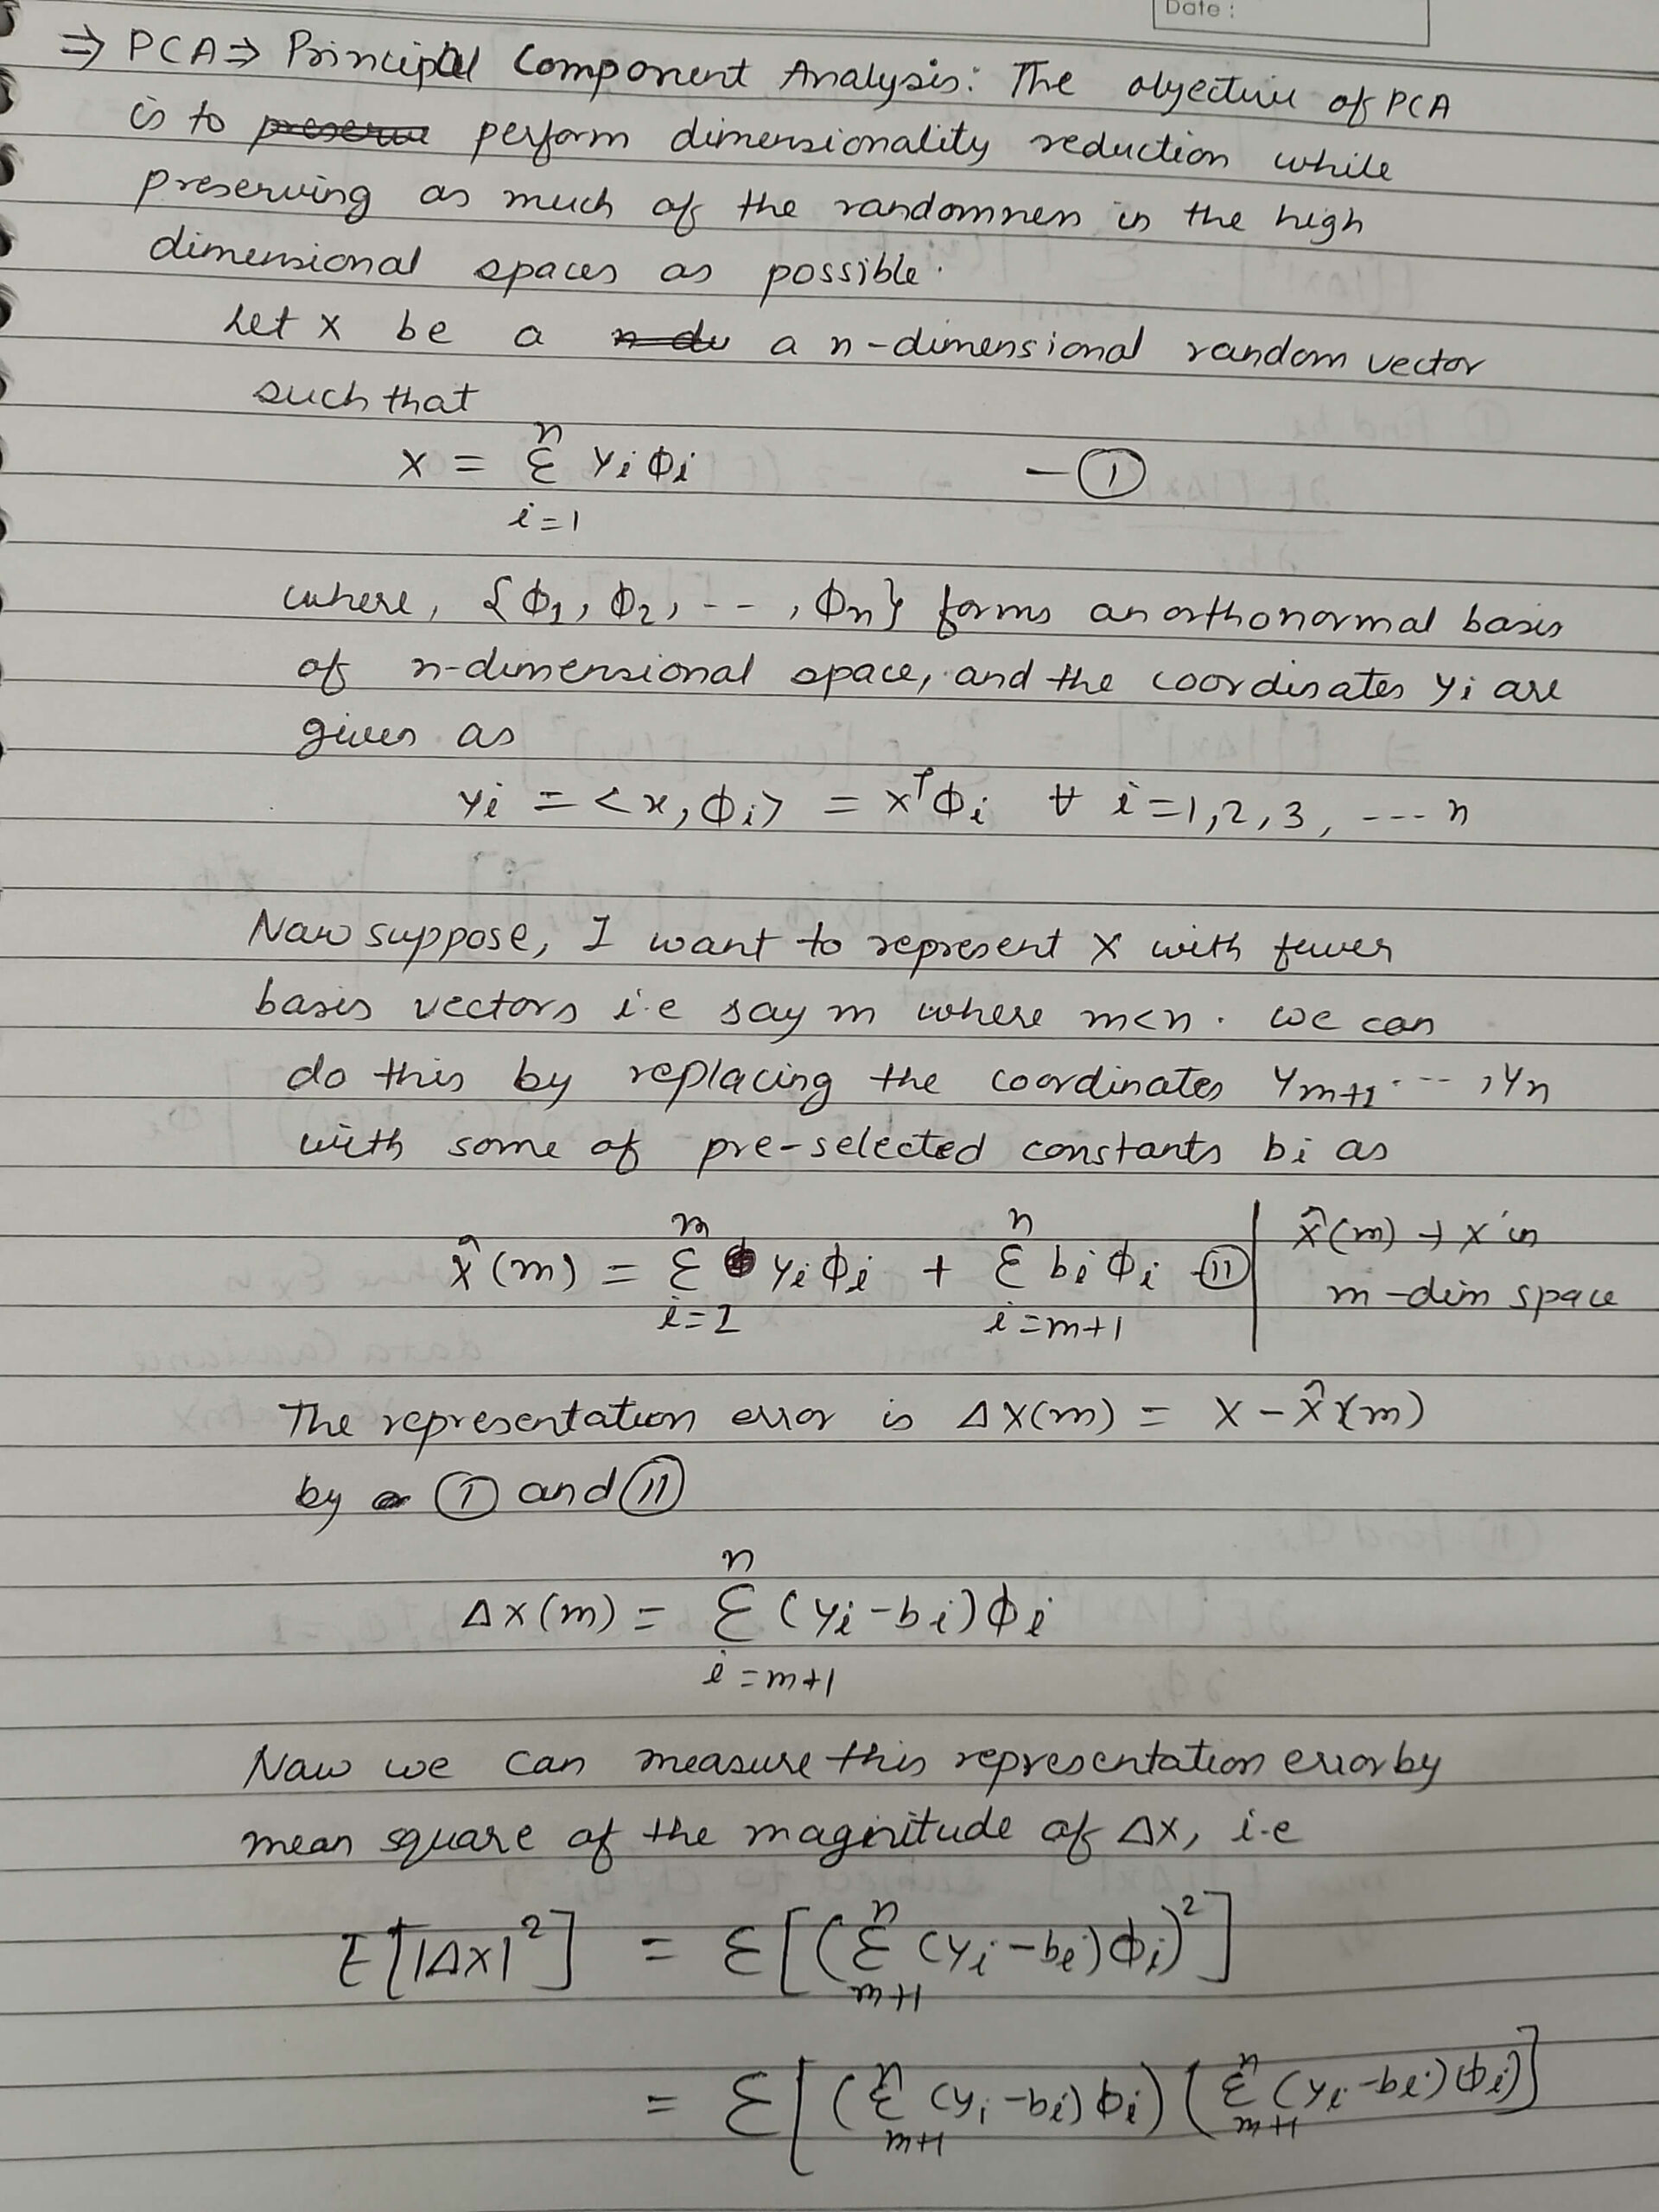 Date :
⇒ PCA ⇒ Principal Component Analysis: The objective of PCA
is to preserve perform dimensionality reduction while
preserving as much of the randomness in the high
dimensional spaces as possible.
Let x be a n-di a n-dimensional random vector
such that
x = Σ_{i=1}^{n} yi ϕi — ①
where, {ϕ1, ϕ2, -- , ϕn} forms an orthonormal basis
of n-dimensional space, and the coordinates yi are
given as
yi = <x, ϕi> = x^T ϕi ∀ i=1,2,3, --- n
Now suppose, I want to represent x with fewer
basis vectors i.e say m where m<n. we can
do this by replacing the coordinates ym+1 --- , yn
with some of pre-selected constants bi as
x̂(m) = Σ_{i=1}^{m} yi ϕi + Σ_{i=m+1}^{n} bi ϕi -⑪ | x̂(m) → x in
m-dim space
The representation error is Δx(m) = x - x̂(m)
by ① and ⑪
Δx(m) = Σ_{i=m+1}^{n} (yi - bi) ϕi
Now we can measure this representation error by
mean square of the magnitude of Δx, i.e
E[|Δx|^2] = E[(Σ_{m+1}^{n} (yi - bi) ϕi)^2]
= E[(Σ_{m+1}^{n} (yi - bi) ϕi) (Σ_{m+1}^{n} (yi - bi) (ϕi)]